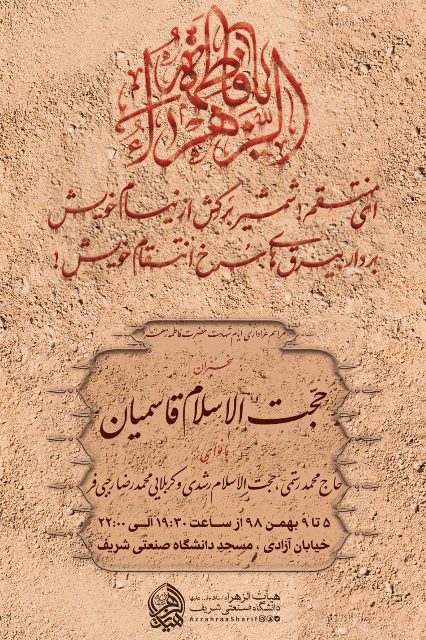 یا فاطمة الزهراء
ای منتقم! شمشیر برکش از نیام خویش
بردار بیرق های سرخ انتقام خویش!
مراسم عزاداری ایام شهادت حضرت فاطمه زهرا
سخنران
حجت الاسلام قاسمیان
با نوای
حاج محمد رستمی، حجت الاسلام رشدی و کربلایی محمدرضا رجبی فر
۵ تا ۹ بهمن ۹۸ از ساعت ۱۹:۳۰ الی ۲۲:۰۰
خیابان آزادی، مسجد دانشگاه صنعتی شریف
هیأت الزهرا سلام الله علیها
دانشگاه صنعتی شریف
AzzahraaSharif